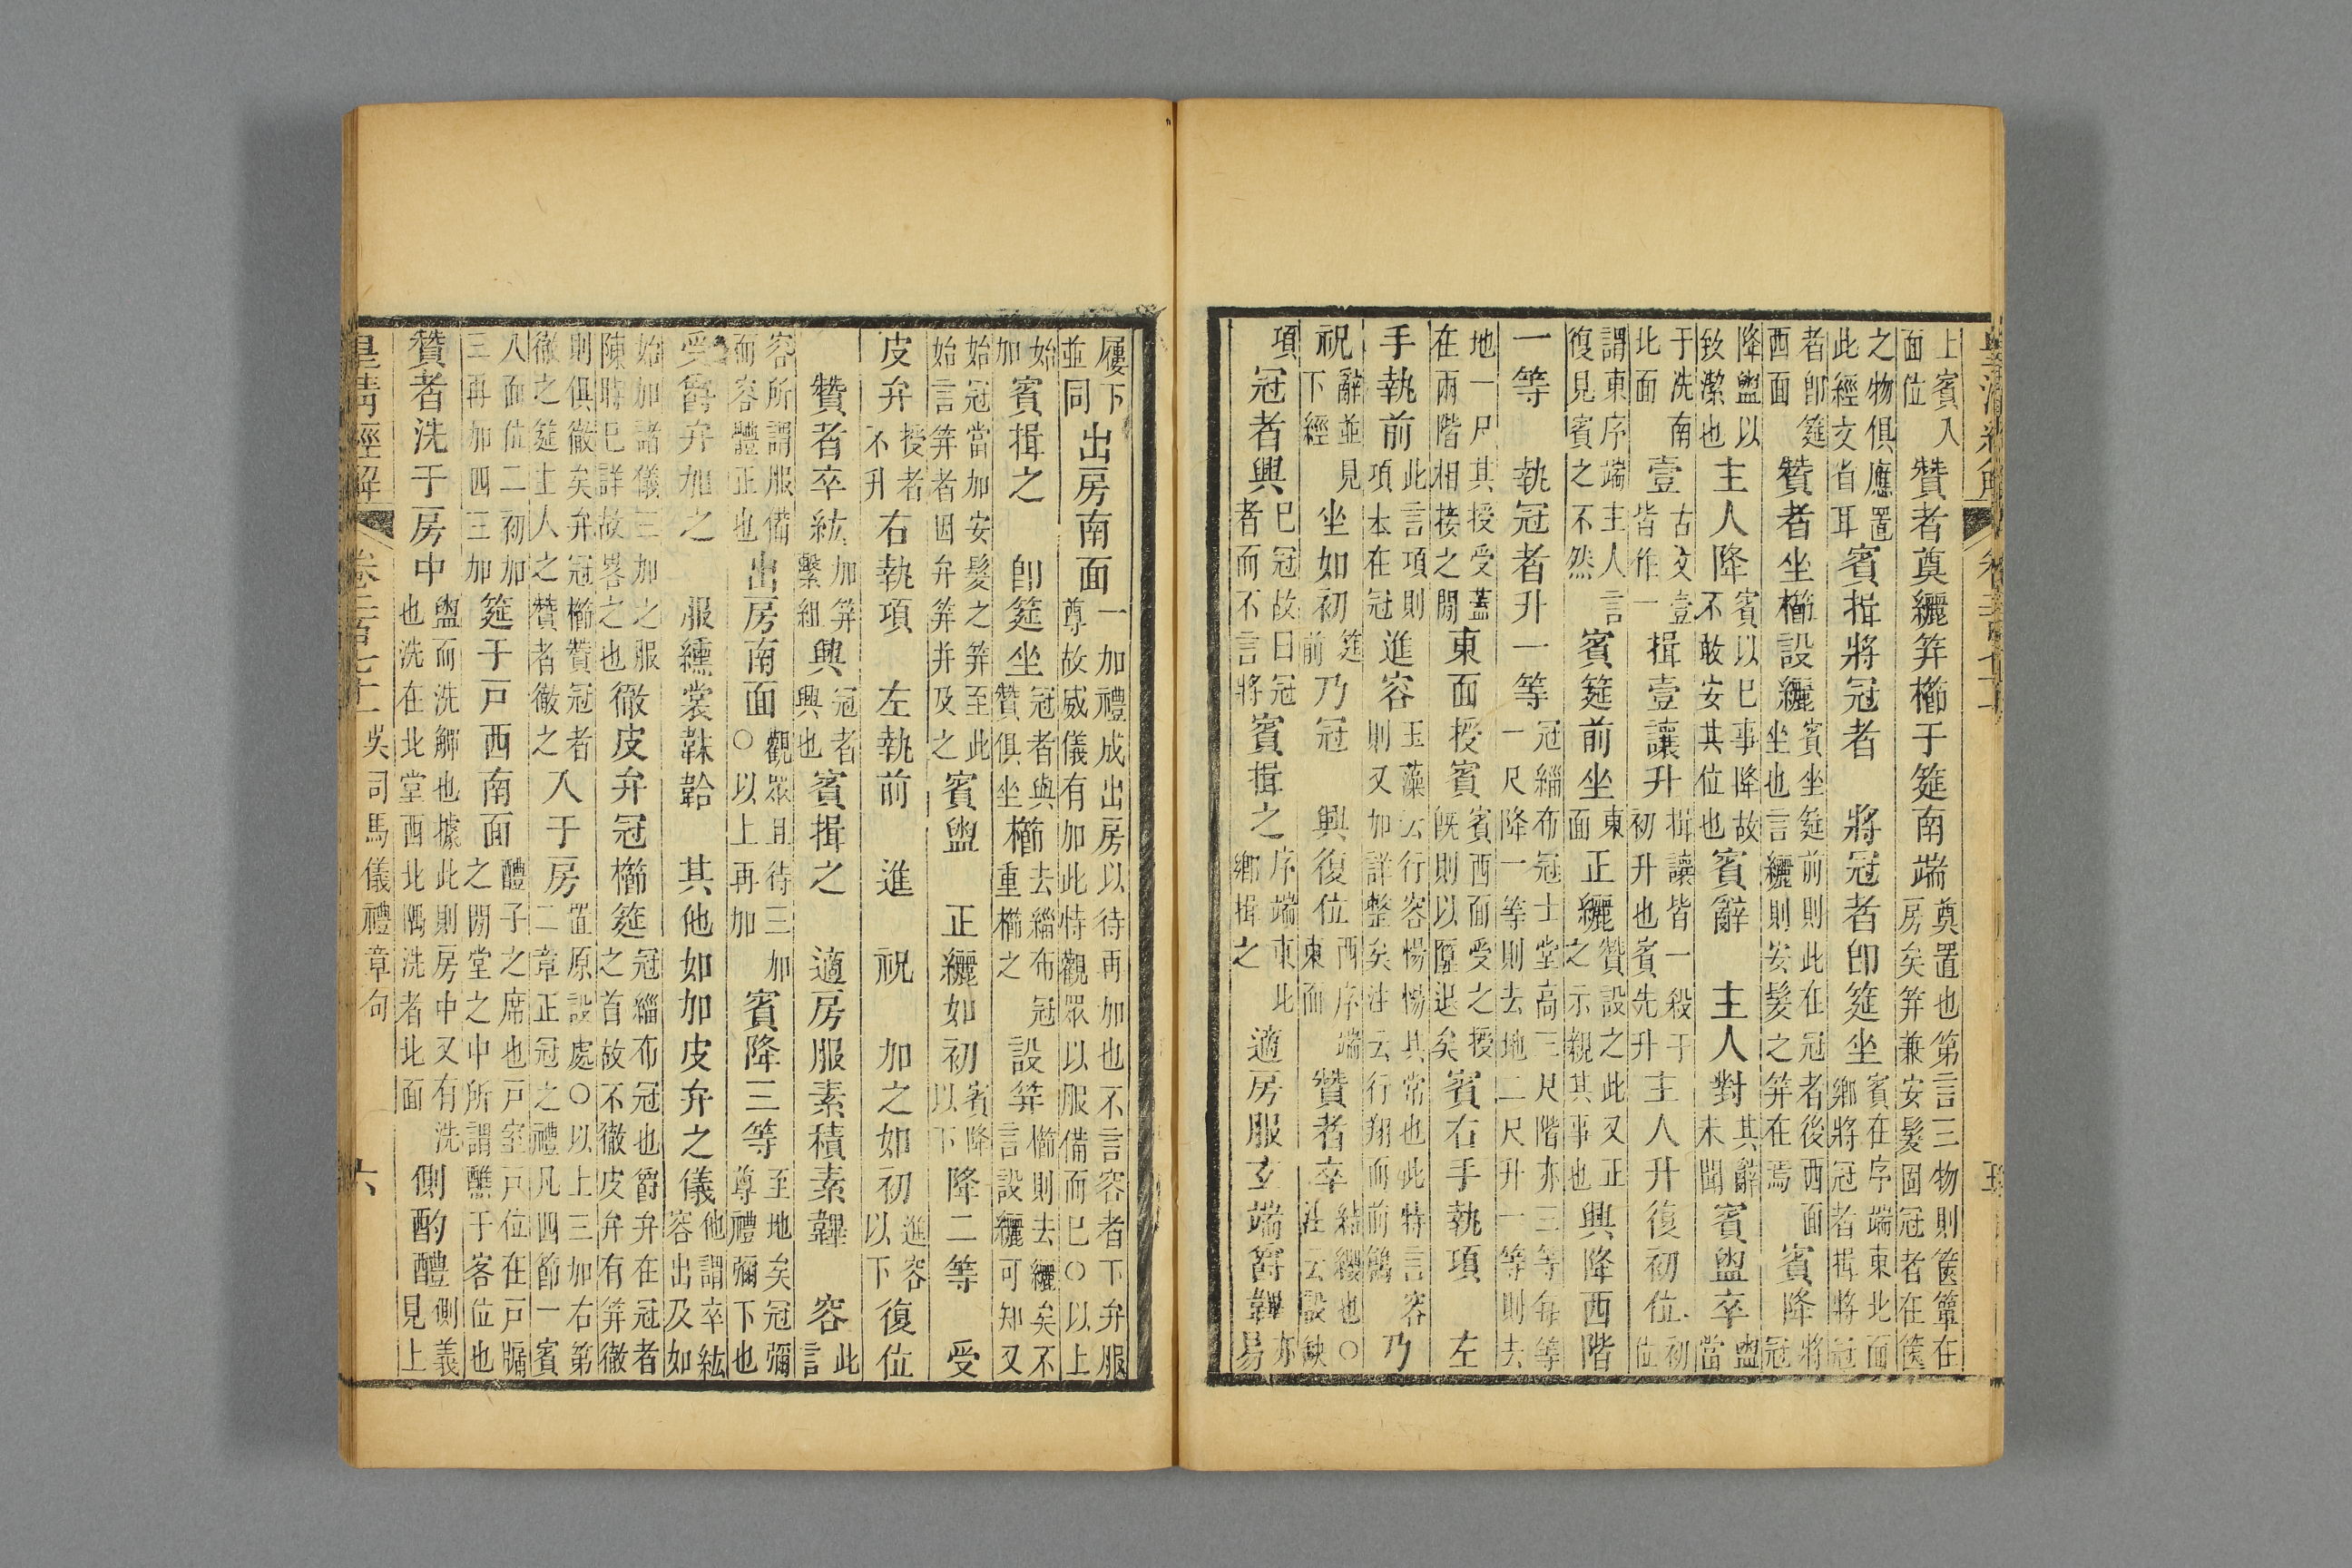 皇清經解 卷二百七十一 五
上賓入面位贊者奠纚笄櫛于筵南端奠置也第言三物則篋簞在房矣笄兼安髮固冠者在篋
之物俱應置此經文省耳賓揖將冠者 將冠者卽筵坐賓在序端東北面鄉將冠者揖將冠
者卽筵西面贊者坐櫛設纚賓坐筵前則此在冠者後西面坐也言纚則安髮之笄在焉賓降將冠
降盥以致潔也主人降賓以巳事降故不敢安其位也賓辭 主人對其辭未聞賓盥卒盥當
于洗南北面壹古文壹皆作一揖壹讓升揖讓皆一殺于初升也賓先升主人升復初位初位
謂東序端主人言復見賓之不然賓筵前坐東面正纚贊設之此又正之示親其事也興降西階
一等 執冠者升一等冠緇布冠士堂高三尺階亦三等每等一尺降一等則去地二尺升一等則去
地一尺其授受蓋在兩階相接之閒東面授賓賓西面受之授既則以退矣賓右手執項 左
手執前此言項則項本在冠進容玉藻云行容愓愓其常也此特言容則又加詳整矣注云行翔而前鶬乃
祝辭並見下經坐如初筵前乃冠 興復位西序端東面贊者卒結纓也○注云設缺
項冠者興巳冠故曰冠者而不言將賓揖之序端東北鄉揖之適房服玄端爵韠亦易
屨下並同出房南面一加禮成出房以待再加也不言容者下弁服尊故威儀有加此特觀眾以服備而巳○以上
始加賓揖之 卽筵坐冠者與贊俱坐櫛去緇布冠重櫛之設笄櫛則去纚矣不言設纚可知又
始冠當加安髮之笄至此始言笄者因弁笄并及之賓盥 正纚如初賓降以下降二等 受
皮弁授者不升右執項 左執前 進 祝 加之如初進容以下復位
贊者卒紘加笄繫組興冠者興也賓揖之 適房服素積素韠 容此言
容所謂服備而容體正也出房南面觀眾且待三加○以上再加賓降三等至地矣冠彌尊禮彌下也
受爵弁加之 服纁裳韎韐 其他如加皮弁之儀他謂卒紘容出及如
始加諸儀三加之服陳時巳詳故畧之也徹皮弁冠櫛筵冠緇布冠也爵弁在冠者之首故不徹皮弁有笄徹
則俱徹矣弁冠櫛贊冠者徹之筵主人之贊者徹之入于房置原設處○以上三加右第二章正冠之禮凡四節一賓
入面位二初加三再加四三加筵于戶西南面醴子之席也戶室戶位在戶牖之閒堂之中所謂醮于客位也
贊者洗于房中盥而洗觶也據此則房中又有洗也洗在北堂西北隅洗者北面側酌醴側義見上
皇清經解 卷二百七十一 吳司馬儀禮章句 六